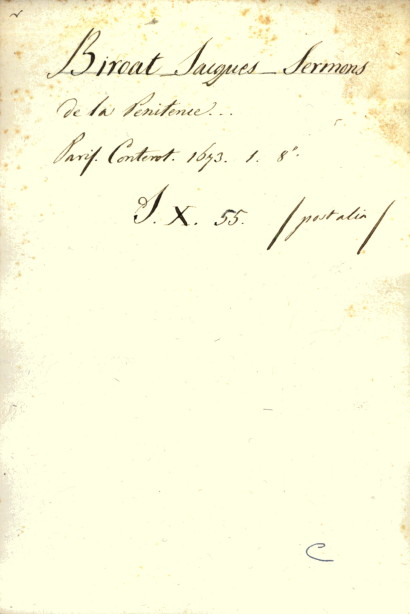 Biroat Jacques Sermons
de la Penitence...
Paris. Conterot. 1673. 1. 8°.
I. X. 55. / post alia /
C